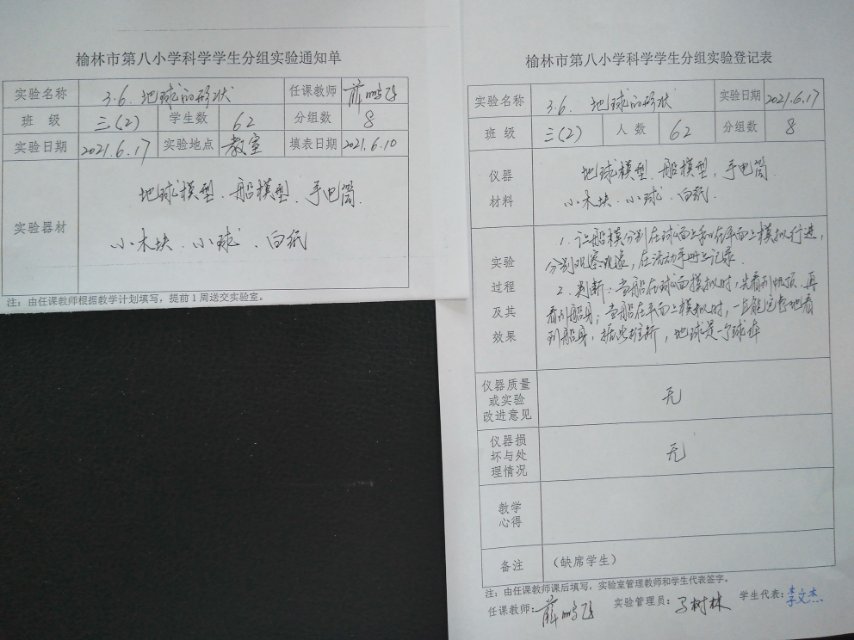 榆林市第八小学科学学生分组实验通知单
实验名称 3.6. 地球的形状 任课教师 薛鹏飞
班 级 三(2) 学生数 62 分组数 8
实验日期 2021.6.17 实验地点 教室 填表日期 2021.6.10
实验器材
地球模型、船模型、手电筒
小木块、小球、白纸
注：由任课教师根据教学计划填写，提前1周送交实验室。
榆林市第八小学科学学生分组实验登记表
实验名称 3.6. 地球的形状 实验日期 2021.6.17
班 级 三(2) 人 数 62 分组数 8
仪器
材料
地球模型、船模型、手电筒
小木块、小球、白纸.
实验
过程
及其
效果
1. 让船模分别在球面上和在平面上模拟行进，
分别观察现象，在活动手册上记录.
2. 判断：当船在球面模拟时，先看到帆顶，再
看到船身；当船在平面上模拟时，一直能完整地看
到船身，推断，地球是一个球体
仪器质量
或实验
改进意见
无
仪器损
坏与处
理情况
无
教学
心得
备注 （缺席学生）
注：由任课教师课后填写，实验室管理教师和学生代表签字。
任课教师：薛鹏飞 实验管理员：马树林 学生代表：李文杰